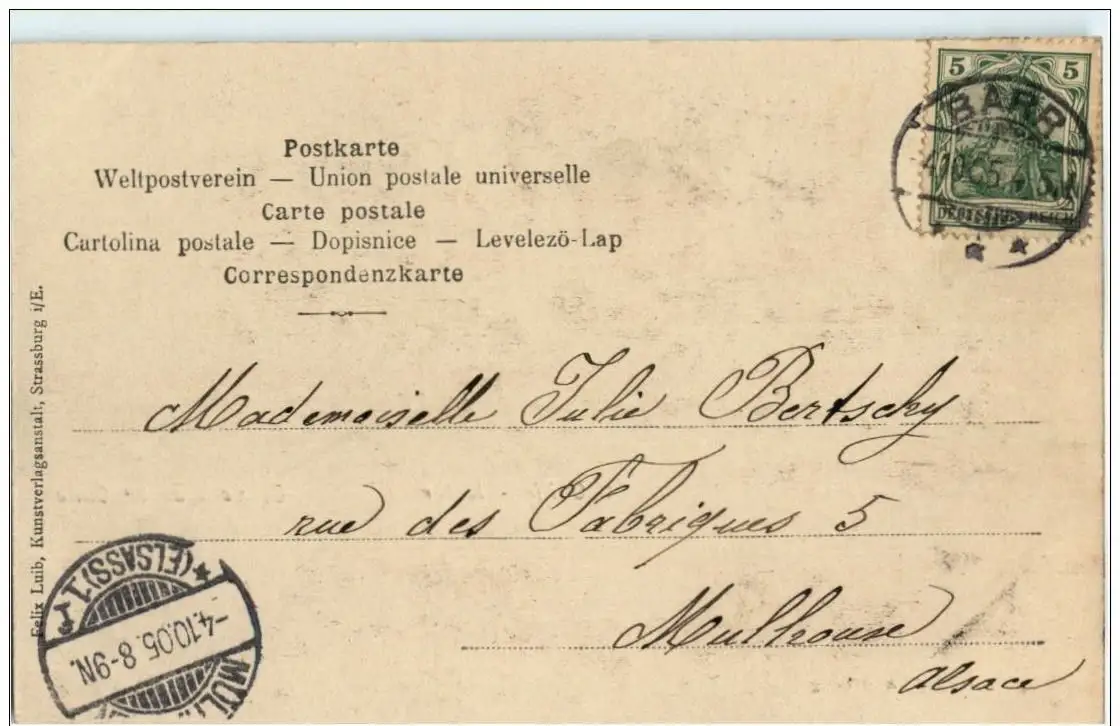 5 5
BARR
4.10.05
DEUTSCHES REICH
Postkarte
Weltpostverein — Union postale universelle
Carte postale
Cartolina postale — Dopisnice — Levelezö-Lap
Correspondenzkarte
Mademoiselle Julie Bertschy
rue des Fabriques 5
Mulhouse
Alsace
Felix Luib, Kunstverlagsanstalt, Strassburg i/E.
(ELSASS) 1
-4.10.05. 8-9N.